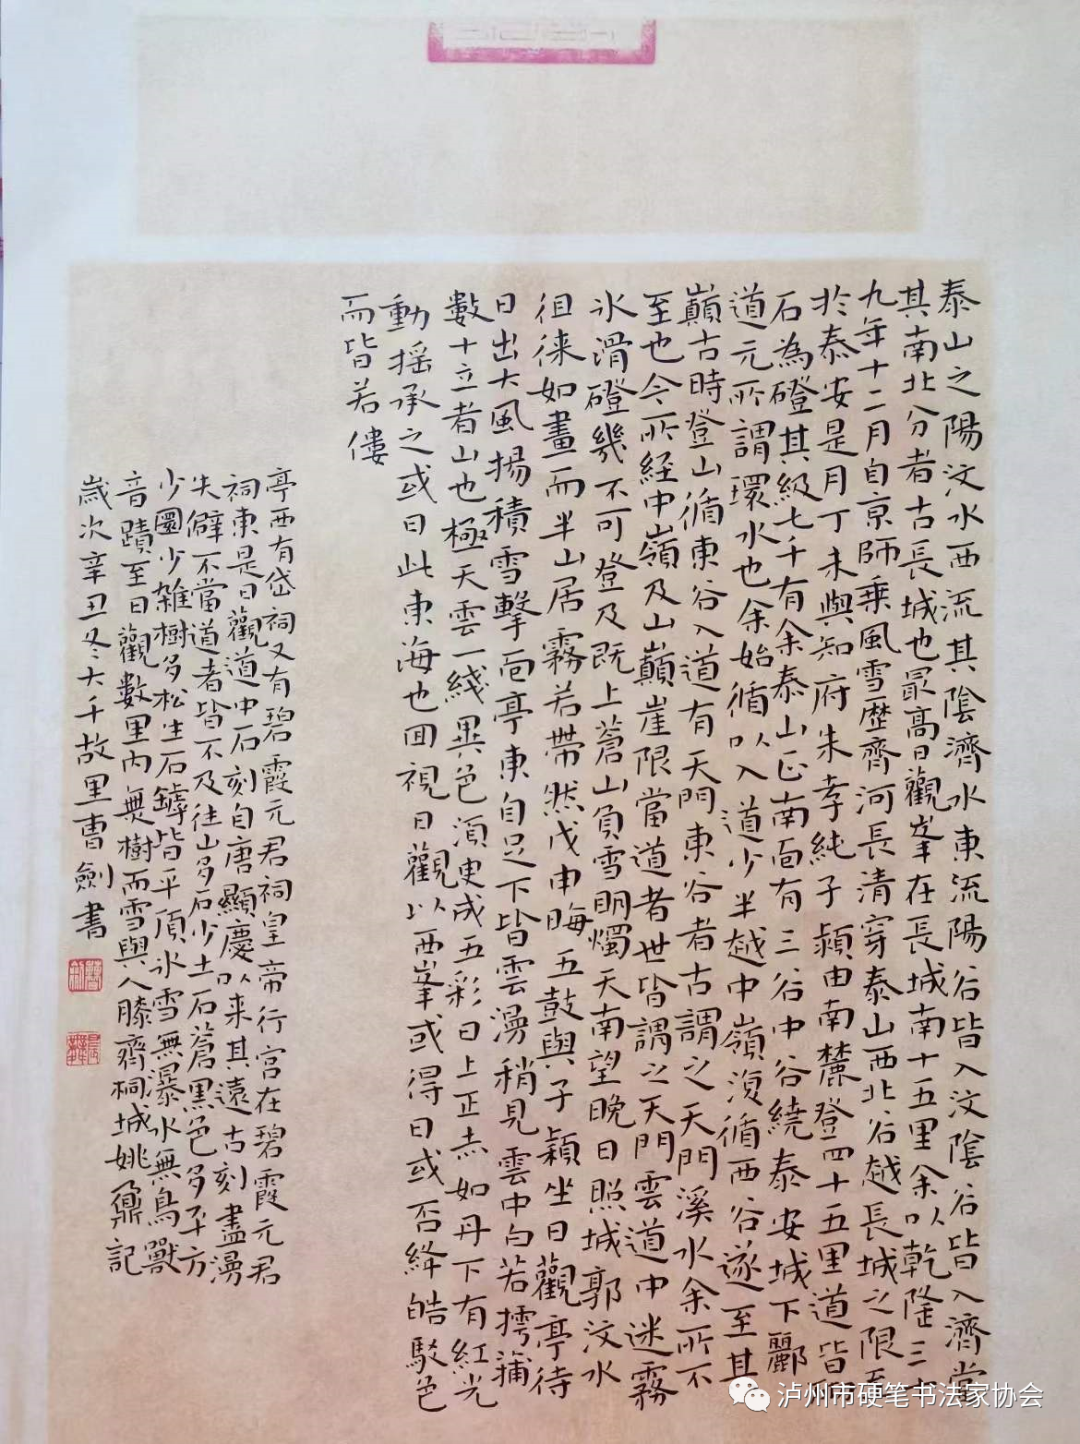 泰山之陽汶水西流其陰濟水東流陽谷皆入汶陰谷皆入濟當
其南北分者古長城也最高日觀峯在長城南十五里余以乾隆三十
九年十二月自京師乘風雪歷齊河長清穿泰山西北谷越長城之限至
於泰安是月丁未與知府朱孝純子潁由南麓登四十五里道皆砌
石為磴其級七千有余泰山正南面有三谷中谷繞泰安城下酈
道元所謂環水也余始循以入道少半越中嶺復循西谷遂至其
巔古時登山循東谷入道有天門東谷者古謂之天門溪水余所不
至也今所經中嶺及山巔崖限當道者世皆謂之天門雲道中迷霧
冰滑磴幾不可登及既上蒼山負雪明燭天南望晚日照城郭汶水
徂徠如畫而半山居霧若帶然戊申晦五鼓與子穎坐日觀亭待
日出大風揚積雪擊面亭東自足下皆雲漫稍見雲中白若摴蒱
數十立者山也極天雲一綫異色須臾成五彩日上正赤如丹下有紅光
動揺承之或曰此東海也回視日觀以西峯或得日或否絳皓駁色
而皆若僂
亭西有岱祠又有碧霞元君祠皇帝行宮在碧霞元君
祠東是日觀道中石刻自唐顯慶以来其遠古刻盡漫
失僻不當道者皆不及往山多石少土石蒼黑色多平方
少圜少雜樹多松生石罅皆平頂冰雪無瀑水無鳥獸
音蹟至日觀數里內無樹而雪與人膝齊桐城姚鼐記
歲次辛丑冬大千故里曹劍書
泸州市硬笔书法家协会